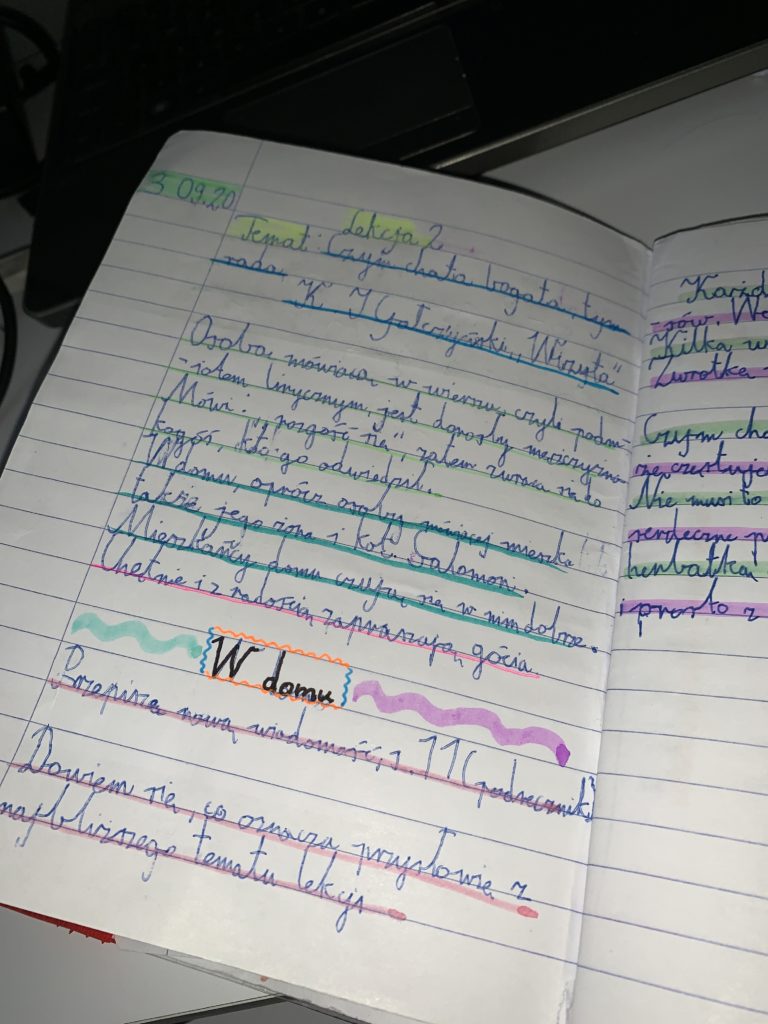 3 09.20
Lekcja 2
Temat: Czym chata bogata, tym
rada.
K. I Gałczyński „Wizyta"
Osoba mówiąca w wierszu, czyli podm-
-iotem lirycznym, jest dorosły mężczyzna
Mówi: „rozgość się", zatem zwraca się do
kogoś, kto go odwiedził.
W domu, oprócz osoby mówiącej mieszka
także jego żona i kot Salomon.
Mieszkańcy domu czują się w nim dobrze.
Chętnie i z radością zapraszają gościa.
W domu
Przepiszę nową wiadomość, s. 11 (podręcznik)
Dowiem się, co oznacza przysłowie z
najbliższego tematu lekcji
Każd
-sów. We
Kilka w
Zwrotka
Czym cha
się częstują
Nie musi to
serdeczne p
herbatka
i prosto z